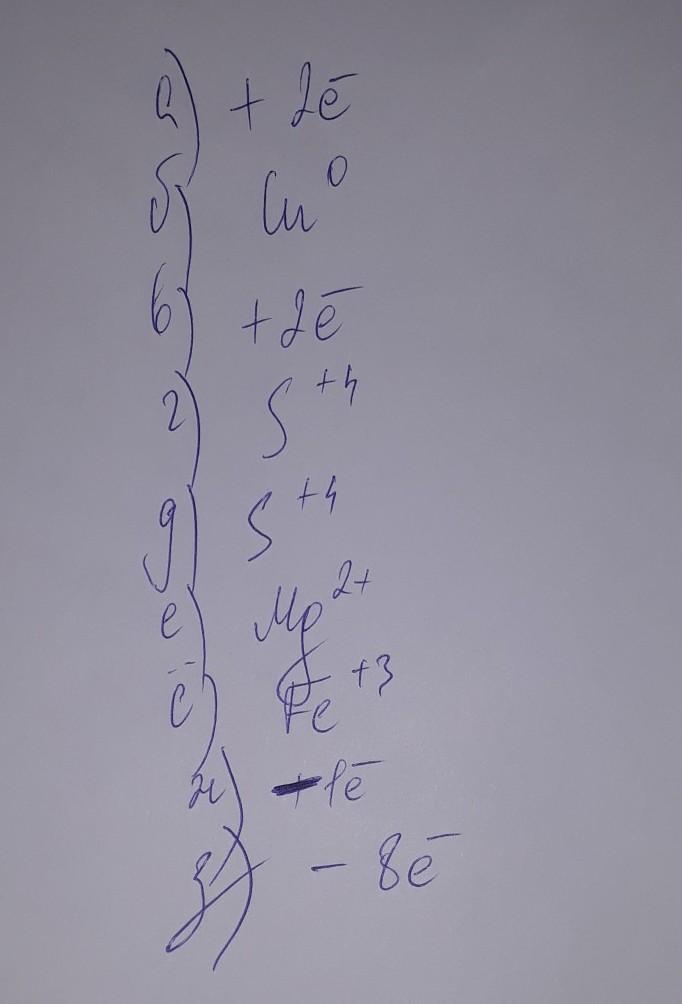 а) + 2ē
б) Cu⁰
в) +2ē
г) S⁺⁴
д) S⁺⁴
е) Mg²⁺
ё) Fe⁺³
ж) -1ē
з) - 8ē